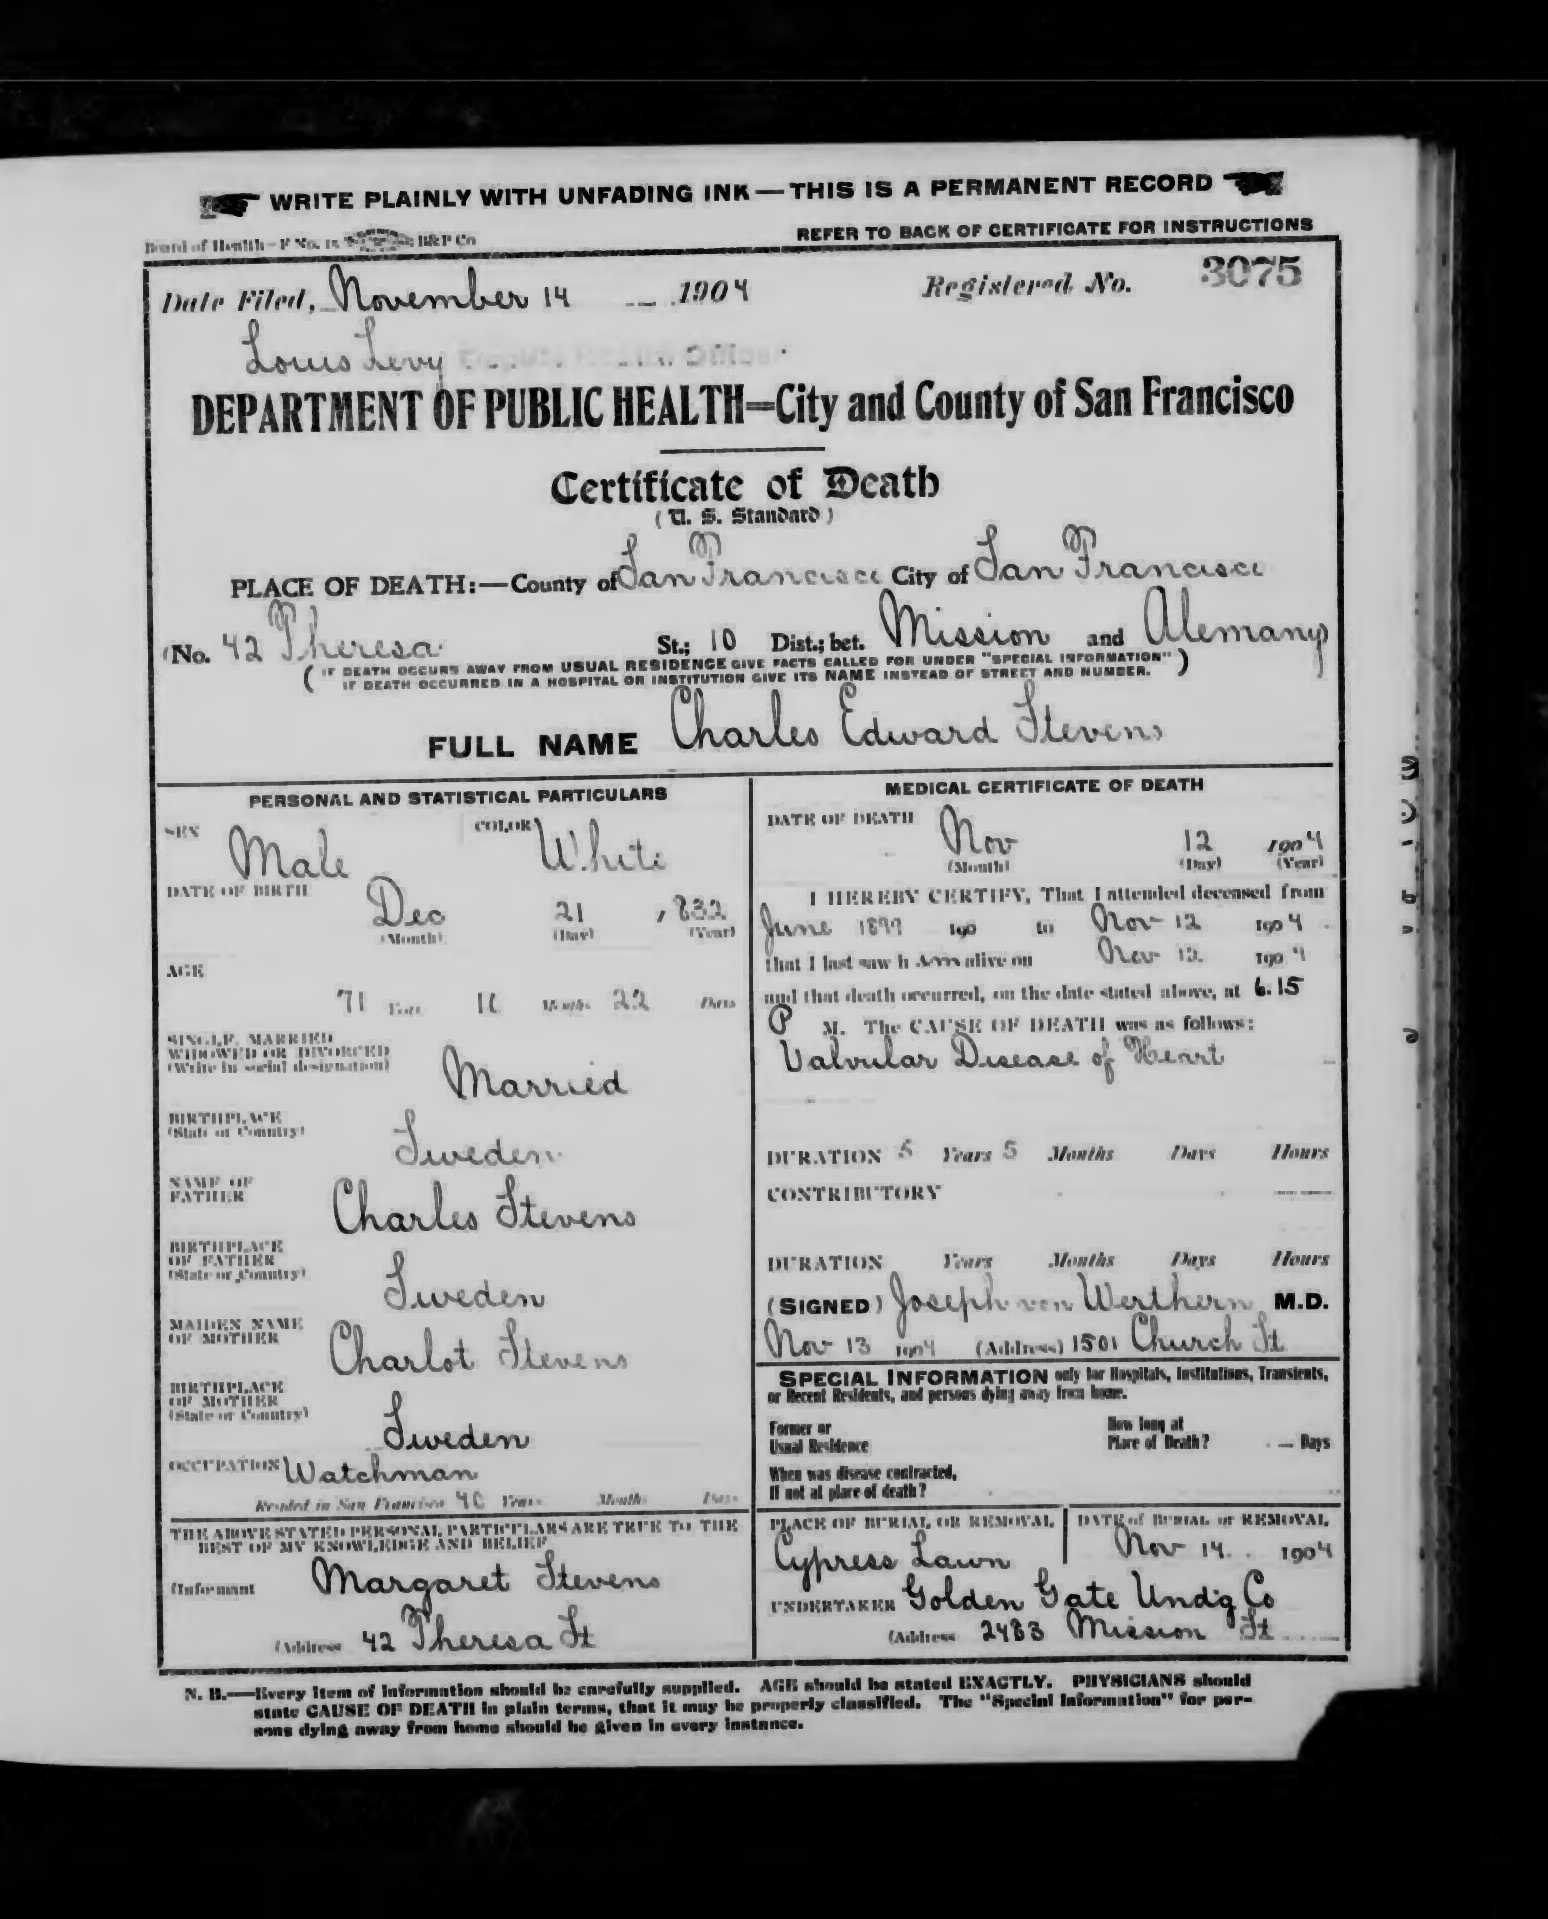 WRITE PLAINLY WITH UNFADING INK — THIS IS A PERMANENT RECORD
Board of Health—F No. 15 B&P Co
REFER TO BACK OF CERTIFICATE FOR INSTRUCTIONS
Date Filed, November 14 1904 Registered No. 3075
Louis Levy Deputy Health Officer
DEPARTMENT OF PUBLIC HEALTH=City and County of San Francisco
Certificate of Death
(U. S. Standard)
PLACE OF DEATH:—County of San Francisco City of San Francisco
(No. 42 Theresa St.; 10 Dist.; bet. Mission and Alemany)
(IF DEATH OCCURS AWAY FROM USUAL RESIDENCE GIVE FACTS CALLED FOR UNDER "SPECIAL INFORMATION"
IF DEATH OCCURRED IN A HOSPITAL OR INSTITUTION GIVE ITS NAME INSTEAD OF STREET AND NUMBER.)
FULL NAME Charles Edward Stevens
PERSONAL AND STATISTICAL PARTICULARS
SEX Male COLOR White
DATE OF BIRTH Dec 21, 1832
(Month) (Day) (Year)
AGE
71 Years 10 Months 22 Days
SINGLE, MARRIED
WIDOWED OR DIVORCED
(Write in social designation) Married
BIRTHPLACE
(State or Country) Sweden
NAME OF
FATHER Charles Stevens
BIRTHPLACE
OF FATHER
(State or Country) Sweden
MAIDEN NAME
OF MOTHER Charlot Stevens
BIRTHPLACE
OF MOTHER
(State or Country) Sweden
OCCUPATION Watchman
Resided in San Francisco 40 Years Months Days
THE ABOVE STATED PERSONAL PARTICULARS ARE TRUE TO THE
BEST OF MY KNOWLEDGE AND BELIEF
(Informant Margaret Stevens
(Address 42 Theresa St
MEDICAL CERTIFICATE OF DEATH
DATE OF DEATH Nov 12 1904
(Month) (Day) (Year)
I HEREBY CERTIFY, That I attended deceased from
June 1899 190 to Nov 12 1904
that I last saw h im alive on Nov 12. 1904
and that death occurred, on the date stated above, at 6.15
P M. The CAUSE OF DEATH was as follows:
Valvular Disease of Heart
DURATION 5 Years 5 Months Days Hours
CONTRIBUTORY
DURATION Years Months Days Hours
(SIGNED) Joseph von Werthern M.D.
Nov 13 1904 (Address) 1501 Church St
SPECIAL INFORMATION only for Hospitals, Institutions, Transients,
or Recent Residents, and persons dying away from home.
Former or
Usual Residence
How long at
Place of Death? Days
When was disease contracted,
If not at place of death?
PLACE OF BURIAL OR REMOVAL
Cypress Lawn
DATE of BURIAL or REMOVAL
Nov 14. 1904
UNDERTAKER Golden Gate Und'g Co
(Address 2483 Mission St
N. B.—Every item of information should be carefully supplied. AGE should be stated EXACTLY. PHYSICIANS should
state CAUSE OF DEATH in plain terms, that it may be properly classified. The "Special Information" for per-
sons dying away from home should be given in every instance.